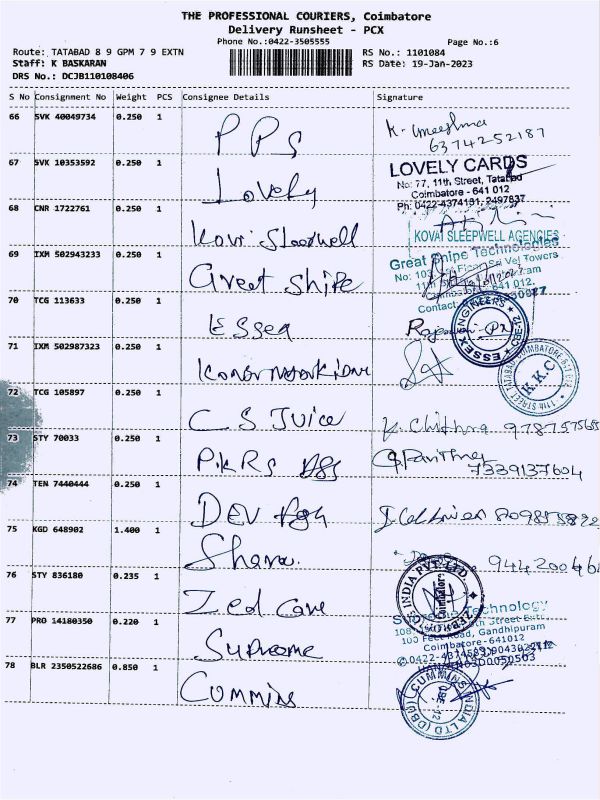 THE PROFESSIONAL COURIERS, Coimbatore
Delivery Runsheet - PCX
Phone No.:0422-3505555
Page No.:6
Route: TATABAD 8 9 GPM 7 9 EXTN
RS No.: 1101084
Staff: K BASKARAN
RS Date: 19-Jan-2023
DRS No.: DCJB110108406
S No Consignment No Weight PCS Consignee Details Signature
66 SVK 40049734 0.250 1
PPS
6374252187
67 SVK 10353592 0.250 1
Lovely
LOVELY CARDS
No: 77, 11th Street, Tatabad
Coimbatore - 641 012
Ph: 0422-4374131, 2497837
68 CNR 1722761 0.250 1
Kovi Sleepwell
KOVAI SLEEPWELL AGENCIES
69 IXM 502943233 0.250 1
Great Shipe
Great Shipe Technologies
70 TCG 113633 0.250 1
Essex
ESSEX ENGINEERS
71 IXM 502987323 0.250 1
K.K.C
11th STREET TATABAD COIMBATORE
72 TCG 105897 0.250 1
C S Juice
K. Chithra
73 STY 70033 0.250 1
7339137604
74 TEN 7440444 0.250 1
DEV
75 KGD 648902 1.400 1
76 STY 836180 0.235 1
Zed Care
INDIA PVT. LTD.
Coimbatore
77 PRO 14180350 0.220 1
Supreme
Technology
100 Feet Road, Gandhipuram
Coimbatore-641012
78 BLR 2350522686 0.850 1
Cummins
CUMMINS INDIA LTD (DBU)